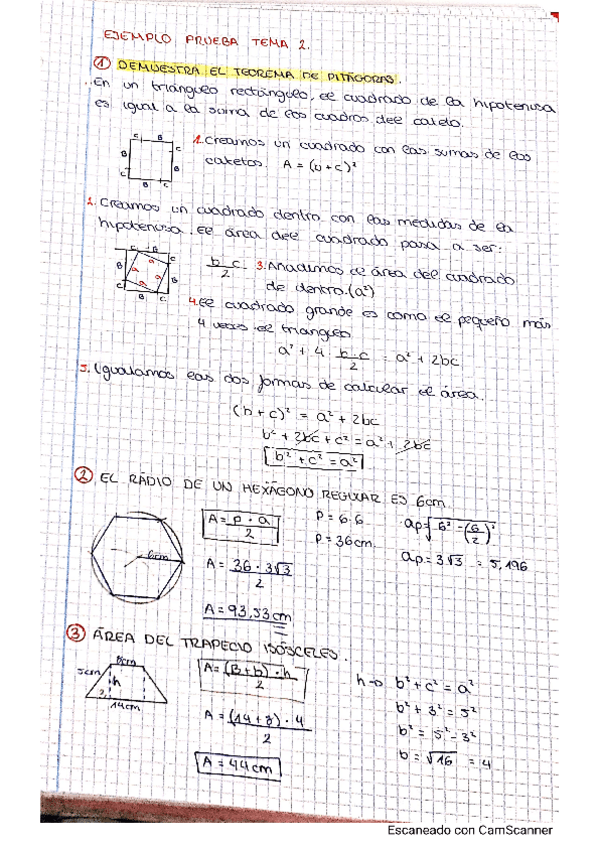 EJEMPLO PRUEBA TEMA 2.
① DEMUESTRA EL TEOREMA DE PITÁGORAS.
En un triángulo rectángulo, el cuadrado de la hipotenusa
es igual a la suma de los cuadros del cateto.
1. Creamos un cuadrado con las sumas de los
catetos. A = (b + c)²
2. Creamos un cuadrado dentro con las medidas de la
hipotenusa. El área del cuadrado pasa a ser:
b · c / 2
3. Añadimos el área del cuadrado
de dentro. (a²)
4. El cuadrado grande es como el pequeño más
4 veces el triángulo
a² + 4 · b · c / 2 = a² + 2bc
5. Igualamos las dos formas de calcular el área.
(b + c)² = a² + 2bc
b² + 2bc + c² = a² + 2bc
b² + c² = a²
② EL RÁDIO DE UN HEXÁGONO REGULAR ES 6cm
6cm
A = P · a / 2
A = 36 · 3√3 / 2
A = 93,53 cm
P = 6 · 6
P = 36cm.
ap = √6² - (6/2)²
ap = 3√3 = 5,196
③ ÁREA DEL TRAPECIO ISÓSCELES.
8cm
5cm
h
14cm
A = (B + b) · h / 2
A = (14 + 8) · 4 / 2
A = 44cm
h → b² + c² = a²
b² + 3² = 5²
b² = 5² - 3²
b = √16 = 4
Escaneado con CamScanner